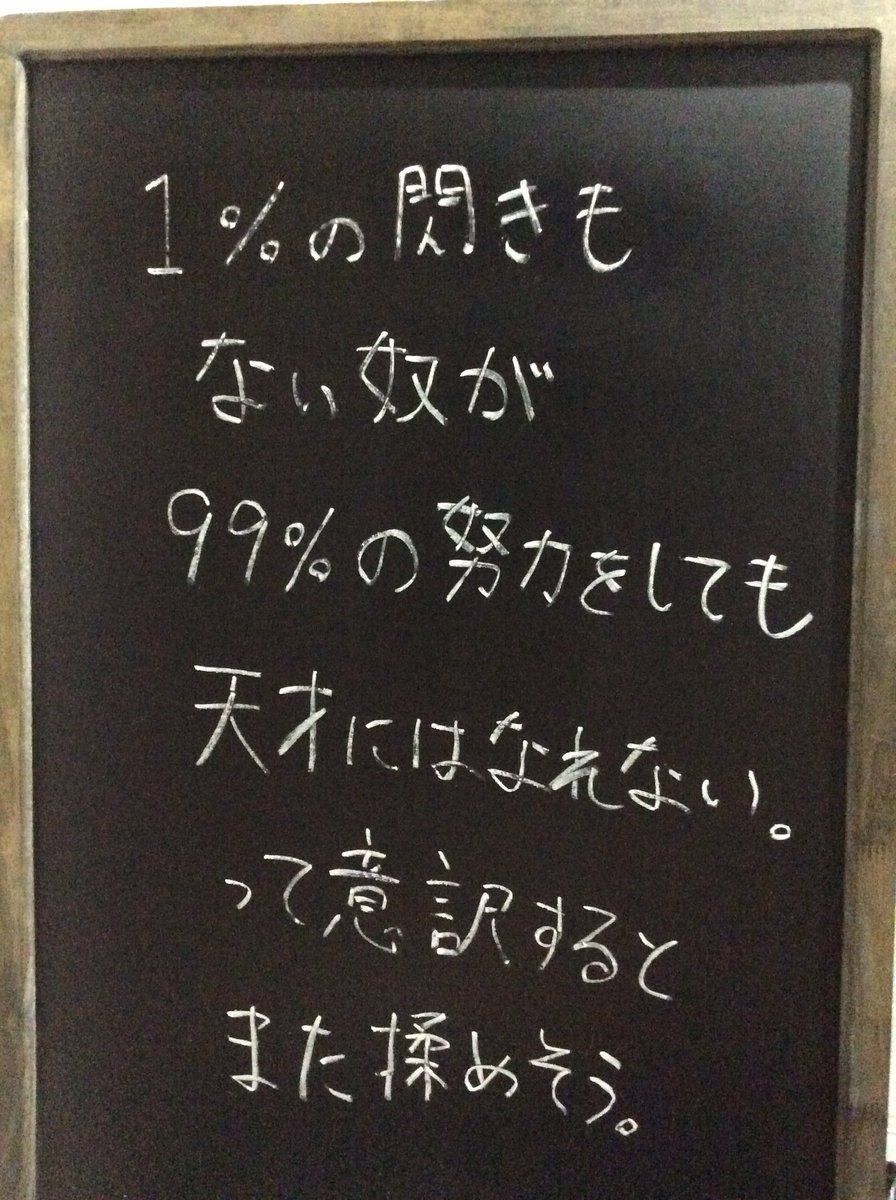 1%の閃きも
ない奴が
99%の努力をしても
天才にはなれない。
って意訳すると
また揉めそう。